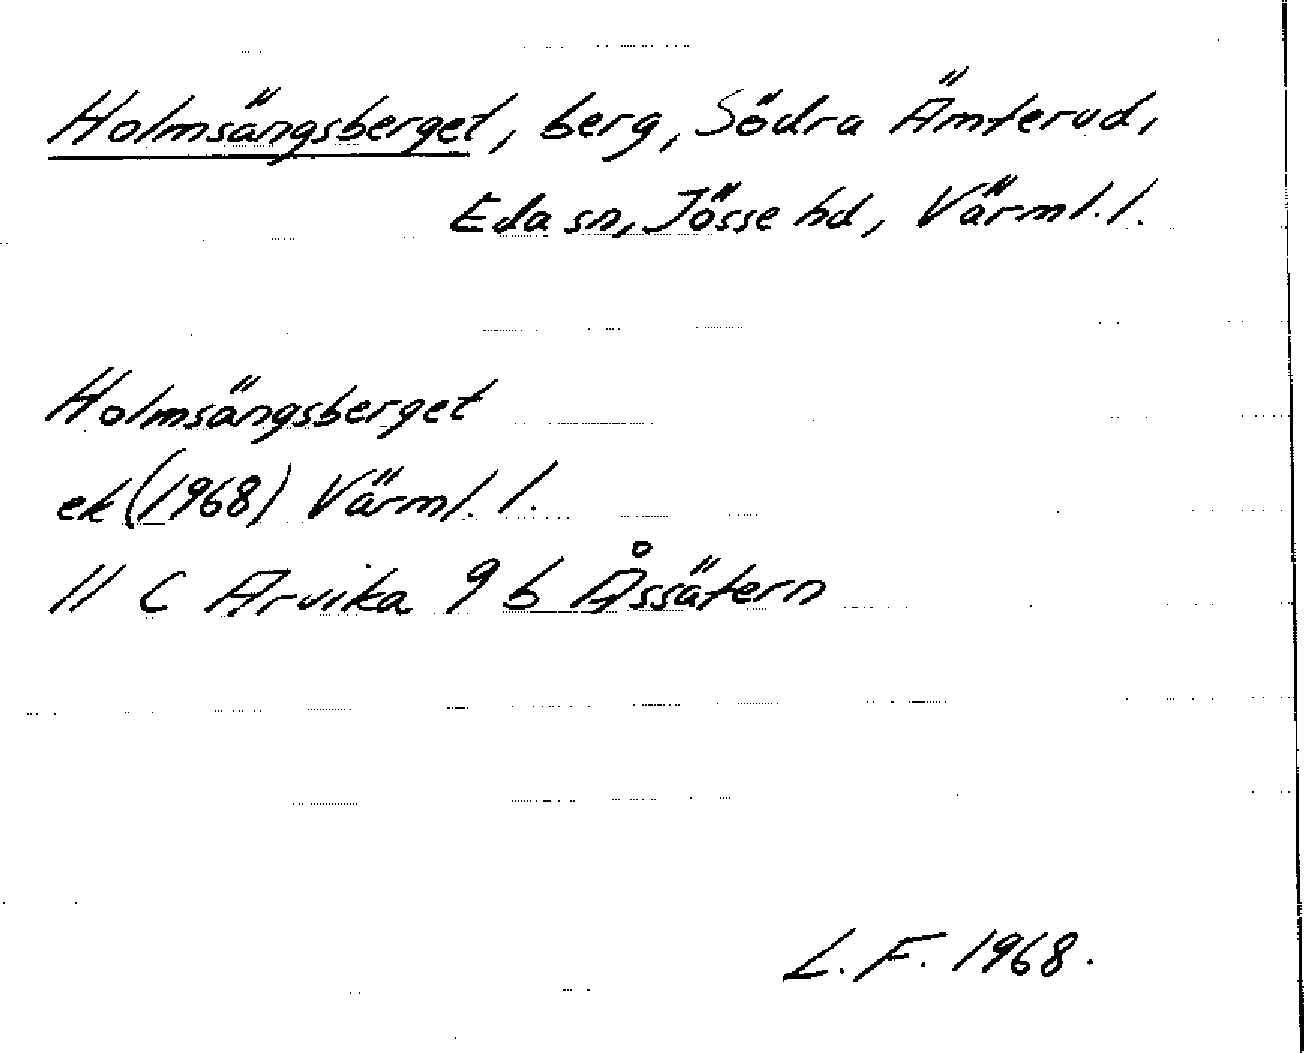 Holmsängsberget, berg, Södra Ämterud,
Eda sn, Jösse hd, Värml. l.
Holmsängsberget
ek (1968) Värml. l.
11 C Arvika 9 b Åssätern
L. F. 1968.